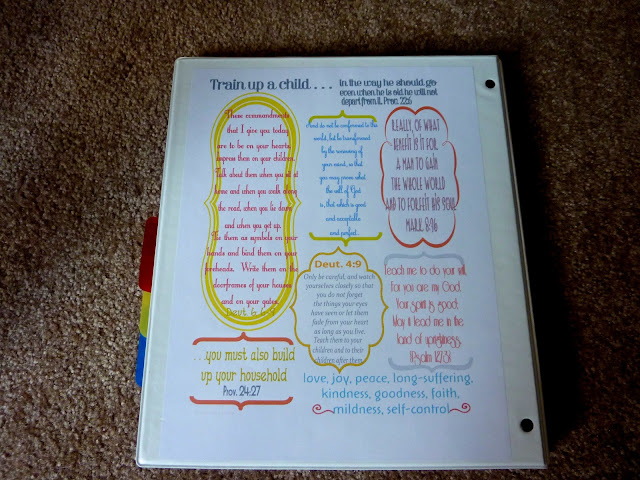 Train up a child . . . in the way he should go
even when he is old he will not
depart from it. Prov. 22:6
These commandments
that I give you today
are to be on your hearts.
Impress them on your children.
Talk about them when you sit at
home and when you walk along
the road, when you lie down
and when you get up.
Tie them as symbols on your
hands and bind them on your
foreheads. Write them on the
doorframes of your houses
and on your gates.
Deut 6:6-9
And do not be conformed to this
world, but be transformed
by the renewing of
your mind, so that
you may prove what
the will of God
is, that which is good
and acceptable
and perfect.
REALLY, OF WHAT
BENEFIT IS IT FOR
A MAN TO GAIN
THE WHOLE WORLD
AND TO FORFEIT HIS SOUL
MARK 8:36
Deut. 4:9
Only be careful, and watch
yourselves closely so that
you do not forget
the things your eyes
have seen or let them
fade from your heart
as long as you live.
Teach them to your
children and to their
children after them.
Teach me to do your will,
For you are my God.
Your spirit is good;
May it lead me in the
land of uprightness.
. . .you must also build
up your household
Prov. 24:27
love, joy, peace, long-suffering,
kindness, goodness, faith,
mildness, self-control